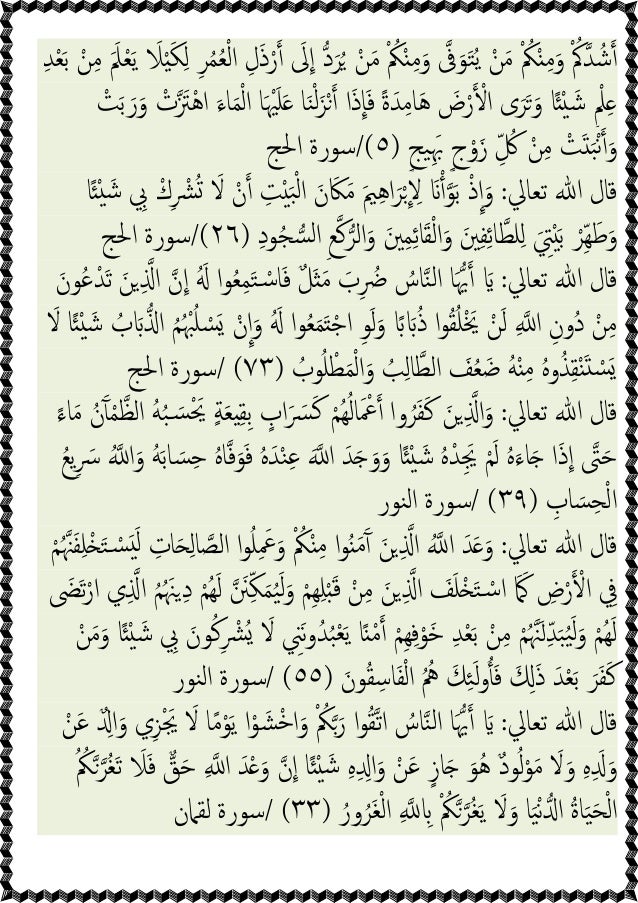 أَشُدَّكُمْ وَمِنْكُمْ مَنْ يُتَوَفَّى وَمِنْكُمْ مَنْ يُرَدُّ إِلَى أَرْذَلِ الْعُمُرِ لِكَيْلَا يَعْلَمَ مِنْ بَعْدِ
عِلْمٍ شَيْئًا وَتَرَى الْأَرْضَ هَامِدَةً فَإِذَا أَنْزَلْنَا عَلَيْهَا الْمَاءَ اهْتَزَّتْ وَرَبَتْ
وَأَنْبَتَتْ مِنْ كُلِّ زَوْجٍ بَهِيجٍ (٥)/سورة الحج
قال الله تعالي: وَإِذْ بَوَّأْنَا لِإِبْرَاهِيمَ مَكَانَ الْبَيْتِ أَنْ لَا تُشْرِكْ بِي شَيْئًا
وَطَهِّرْ بَيْتِيَ لِلطَّائِفِينَ وَالْقَائِمِينَ وَالرُّكَّعِ السُّجُودِ (٢٦)/سورة الحج
قال الله تعالي: يَا أَيُّهَا النَّاسُ ضُرِبَ مَثَلٌ فَاسْتَمِعُوا لَهُ إِنَّ الَّذِينَ تَدْعُونَ
مِنْ دُونِ اللَّهِ لَنْ يَخْلُقُوا ذُبَابًا وَلَوِ اجْتَمَعُوا لَهُ وَإِنْ يَسْلُبْهُمُ الذُّبَابُ شَيْئًا لَا
يَسْتَنْقِذُوهُ مِنْهُ ضَعُفَ الطَّالِبُ وَالْمَطْلُوبُ (٧٣) /سورة الحج
قال الله تعالي: وَالَّذِينَ كَفَرُوا أَعْمَالُهُمْ كَسَرَابٍ بِقِيعَةٍ يَحْسَبُهُ الظَّمْآنُ مَاءً
حَتَّى إِذَا جَاءَهُ لَمْ يَجِدْهُ شَيْئًا وَوَجَدَ اللَّهَ عِنْدَهُ فَوَفَّاهُ حِسَابَهُ وَاللَّهُ سَرِيعُ
الْحِسَابِ (٣٩) /سورة النور
قال الله تعالي: وَعَدَ اللَّهُ الَّذِينَ آمَنُوا مِنْكُمْ وَعَمِلُوا الصَّالِحَاتِ لَيَسْتَخْلِفَنَّهُمْ
فِي الْأَرْضِ كَمَا اسْتَخْلَفَ الَّذِينَ مِنْ قَبْلِهِمْ وَلَيُمَكِّنَنَّ لَهُمْ دِينَهُمُ الَّذِي ارْتَضَى
لَهُمْ وَلَيُبَدِّلَنَّهُمْ مِنْ بَعْدِ خَوْفِهِمْ أَمْنًا يَعْبُدُونَنِي لَا يُشْرِكُونَ بِي شَيْئًا وَمَنْ
كَفَرَ بَعْدَ ذَلِكَ فَأُولَئِكَ هُمُ الْفَاسِقُونَ (٥٥) /سورة النور
قال الله تعالي: يَا أَيُّهَا النَّاسُ اتَّقُوا رَبَّكُمْ وَاخْشَوْا يَوْمًا لَا يَجْزِي وَالِدٌ عَنْ
وَلَدِهِ وَلَا مَوْلُودٌ هُوَ جَازٍ عَنْ وَالِدِهِ شَيْئًا إِنَّ وَعْدَ اللَّهِ حَقٌّ فَلَا تَغُرَّنَّكُمُ
الْحَيَاةُ الدُّنْيَا وَلَا يَغُرَّنَّكُمْ بِاللَّهِ الْغَرُورُ (٣٣) /سورة لقمان